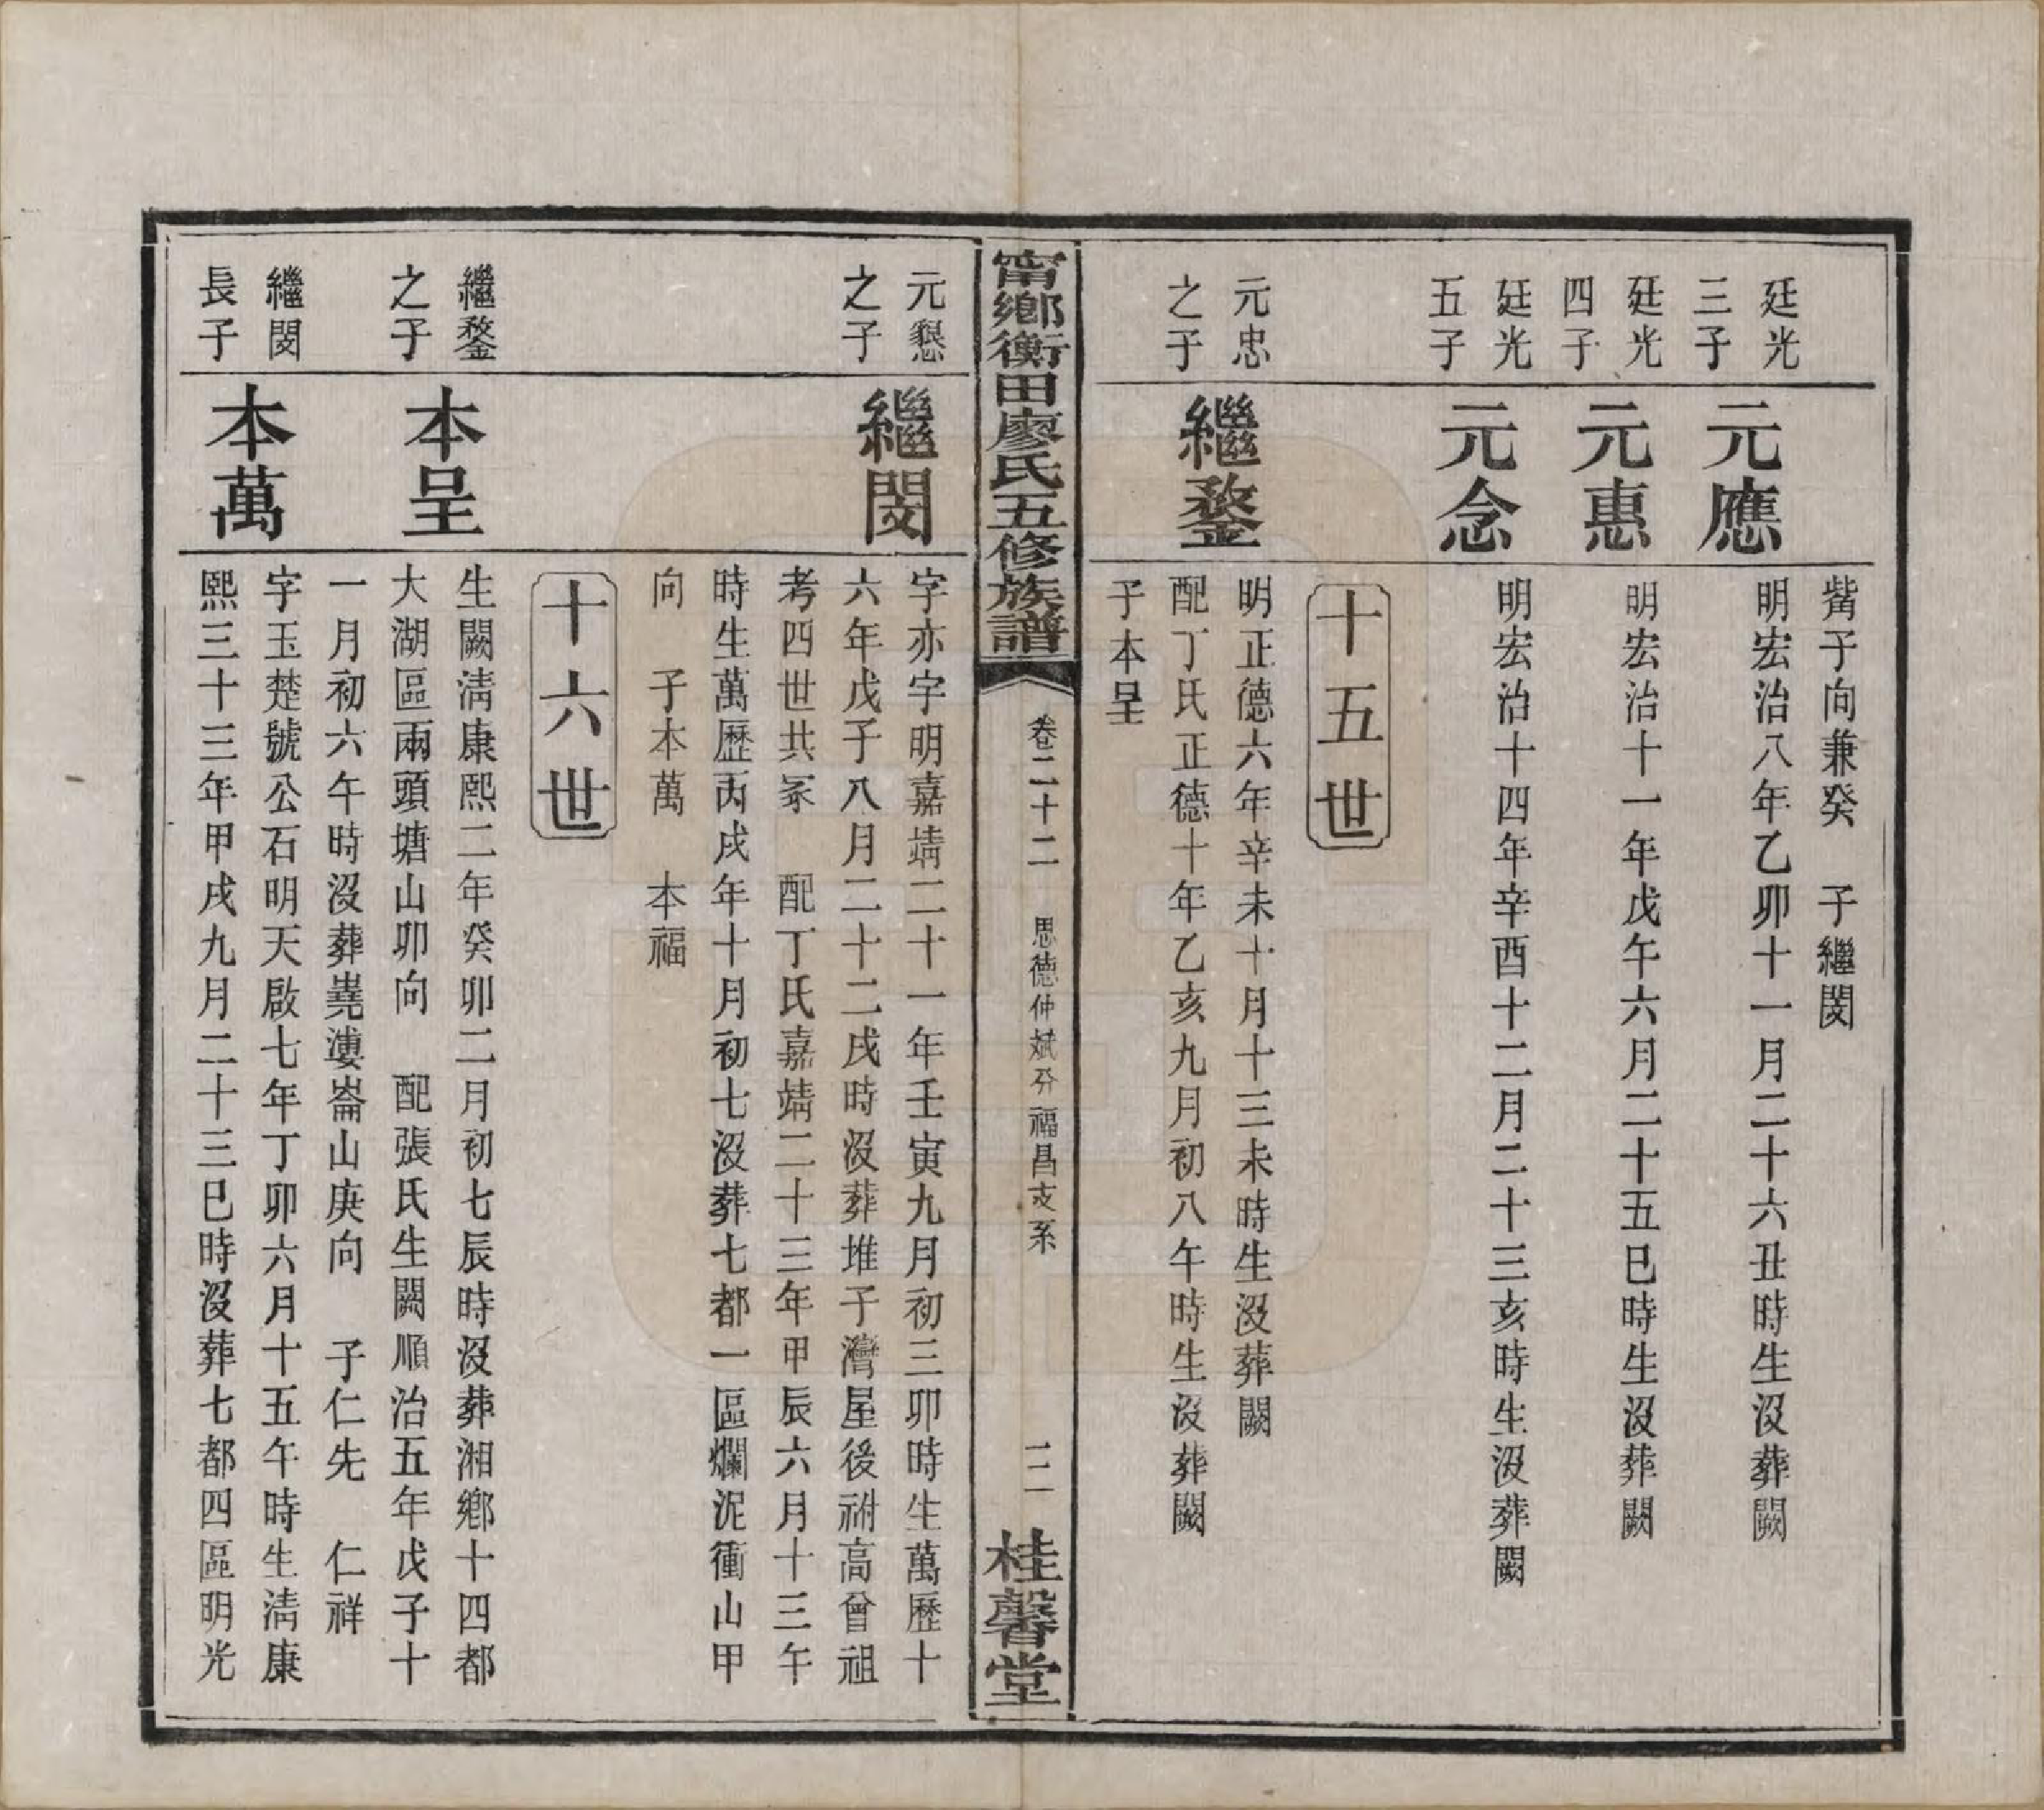 觜子向兼癸　子繼閔
廷光
三子
元應
明宏治八年乙卯十一月二十六丑時生沒葬闕
廷光
四子
元惠
明宏治十一年戊午六月二十五巳時生沒葬闕
廷光
五子
元念
明宏治十四年辛酉十二月二十三亥時生沒葬闕
十五世
元忠
之子
繼鍪
明正德六年辛未十月十三未時生沒葬闕
配丁氏正德十年乙亥九月初八午時生沒葬闕
子本呈
甯鄉衡田廖氏五修族譜
卷二十二
思德仲斌芬福昌支系
二
桂馨堂
元懇
之子
繼閔
字亦字明嘉靖二十一年壬寅九月初三卯時生萬歷十
六年戊子八月二十二戌時沒葬堆子灣屋後祔高曾祖
考四世共冢　配丁氏嘉靖二十三年甲辰六月十三午
時生萬歷丙戌年十月初七沒葬七都一區爛泥衝山甲
向　子本萬　本福
十六世
繼鍪
之子
本呈
生闕清康熙二年癸卯二月初七辰時沒葬湘鄉十四都
大湖區兩頭塘山卯向　配張氏生闕順治五年戊子十
一月初六午時沒葬嶤漊崙山庚向　子仁先　仁祥
繼閔
長子
本萬
字玉楚號公石明天啟七年丁卯六月十五午時生清康
熙三十三年甲戌九月二十三巳時沒葬七都四區明光